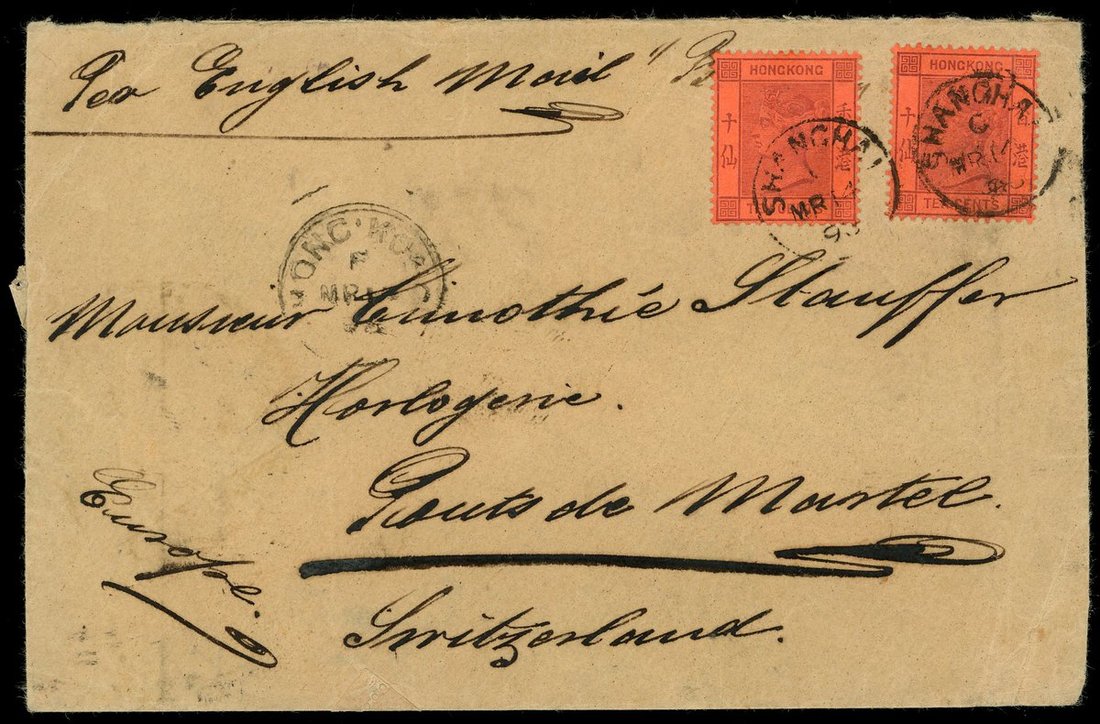 Per English Mail
HONGKONG
十仙
HONGKONG
十仙
香港
TEN CENTS
SHANGHAI
MR 14
SHANGHAI
C
HONG·KONG
F
Monsieur Timothié Stauffer
Horlogerie.
Ponts de Martel.
Switzerland.
Europe.